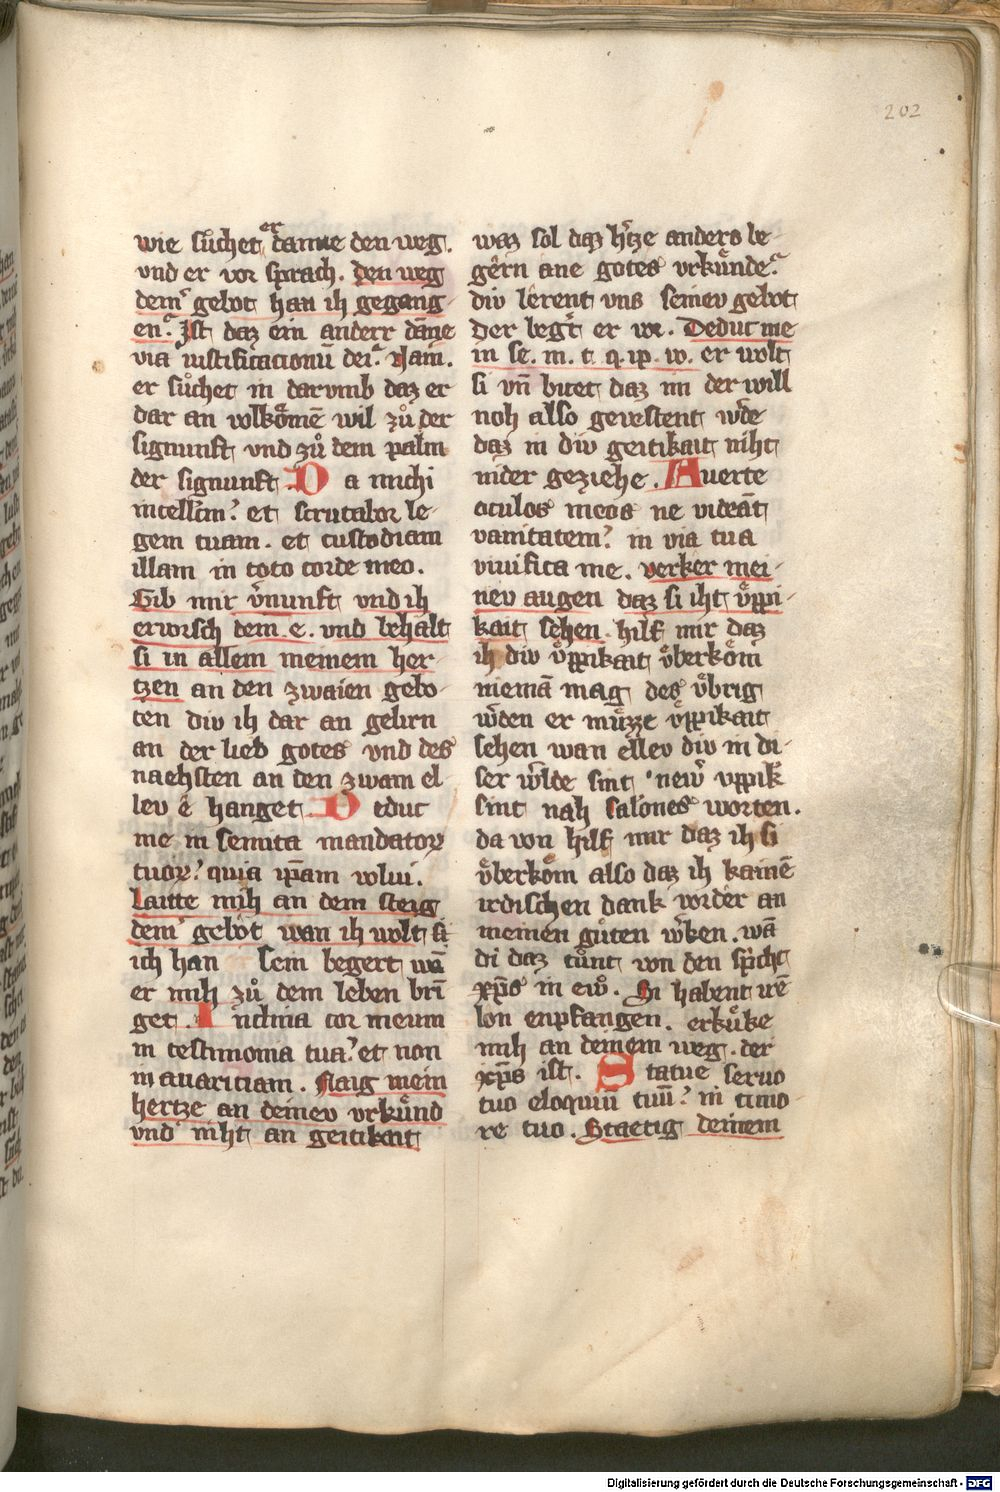 202
wie sůchet er danne den weg.
vnd er vor sprach. den weg
deinˀ gebot han ih gegang-
en. Ist daz ein anderr dāne
via iustificacionū dei. Nain.
er sůchet in darvmb daz er
dar an volkōmē wil zů der
signunft vnd zů dem palm
der signunft Da michi
intellc̄m? et scrutabor le-
gem tuam. et custodiam
illam in toto corde meo.
Gib mir v̄nunft vnd ih
erworsch dein. e. vnd behalt
si in allem meinem her-
tzen an den zwaien gebo-
ten div ih dar an gelirn
an der lieb gotes vnd des
naehsten an den zwain el-
lev ê hanget Deduc
me in semita mandatoꝝ
tuoꝝ? quia ip̄am volui.
Laitte mih an dem steig
deinˀ gebôt wan ih wolt si
ich han sein begert wā
er mih zů dem leben brī
get. Inclina cor meum
in testimonia tua? et non
in auariciam. Naig mein
hertze an deinev vrkund
vnd niht an geitikait
waz sol daz h̄tze anders be-
gêrn ane gotes vrkünde.
div lêrent vns seinev gebot
der beḡt er vor. Deduc me
in se. m. t. q. ip. vo. er wolt
si vn̄ bitet daz im der will
noh also gevestent w̄de
daz in div geitikait niht
nider geziehe. Auerte
oculos meos ne videāt
vanitatem? in via tua
viuifica me. verker mei-
nev augen daz si iht v̈ppi-
kait sehen. hilf mir daz
ih div v̈ppikait v̈berkōm
niemā mag des v̈brig
w̄den er müzze v̈ppikait
sehen wan ellev div in di-
ser w̄lde sint
sint nah salōnes worten.
da von hilf mir daz ih si
v̈berkōm also daz ih kainē
irdischen dank vorder an
meinen gůten w̄ken. wā
di daz tůnt von den sp̄icht
xp̄s in ew̄. Si habent irē
lon enpfangen. erküke
mih an deinem weg. der
xp̄s ist. Statue seruo
tuo eloquiū tuū? in timo-
re tuo. Staetig deinem
Digitalisierung gefördert durch die Deutsche Forschungsgemeinschaft - DFG